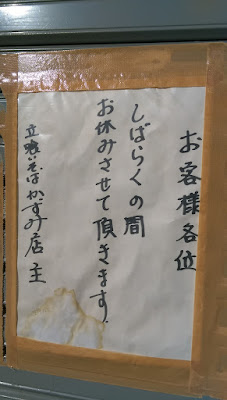 お客様各位
しばらくの間
お休みさせて頂きます.
立喰いそばかすみ店主